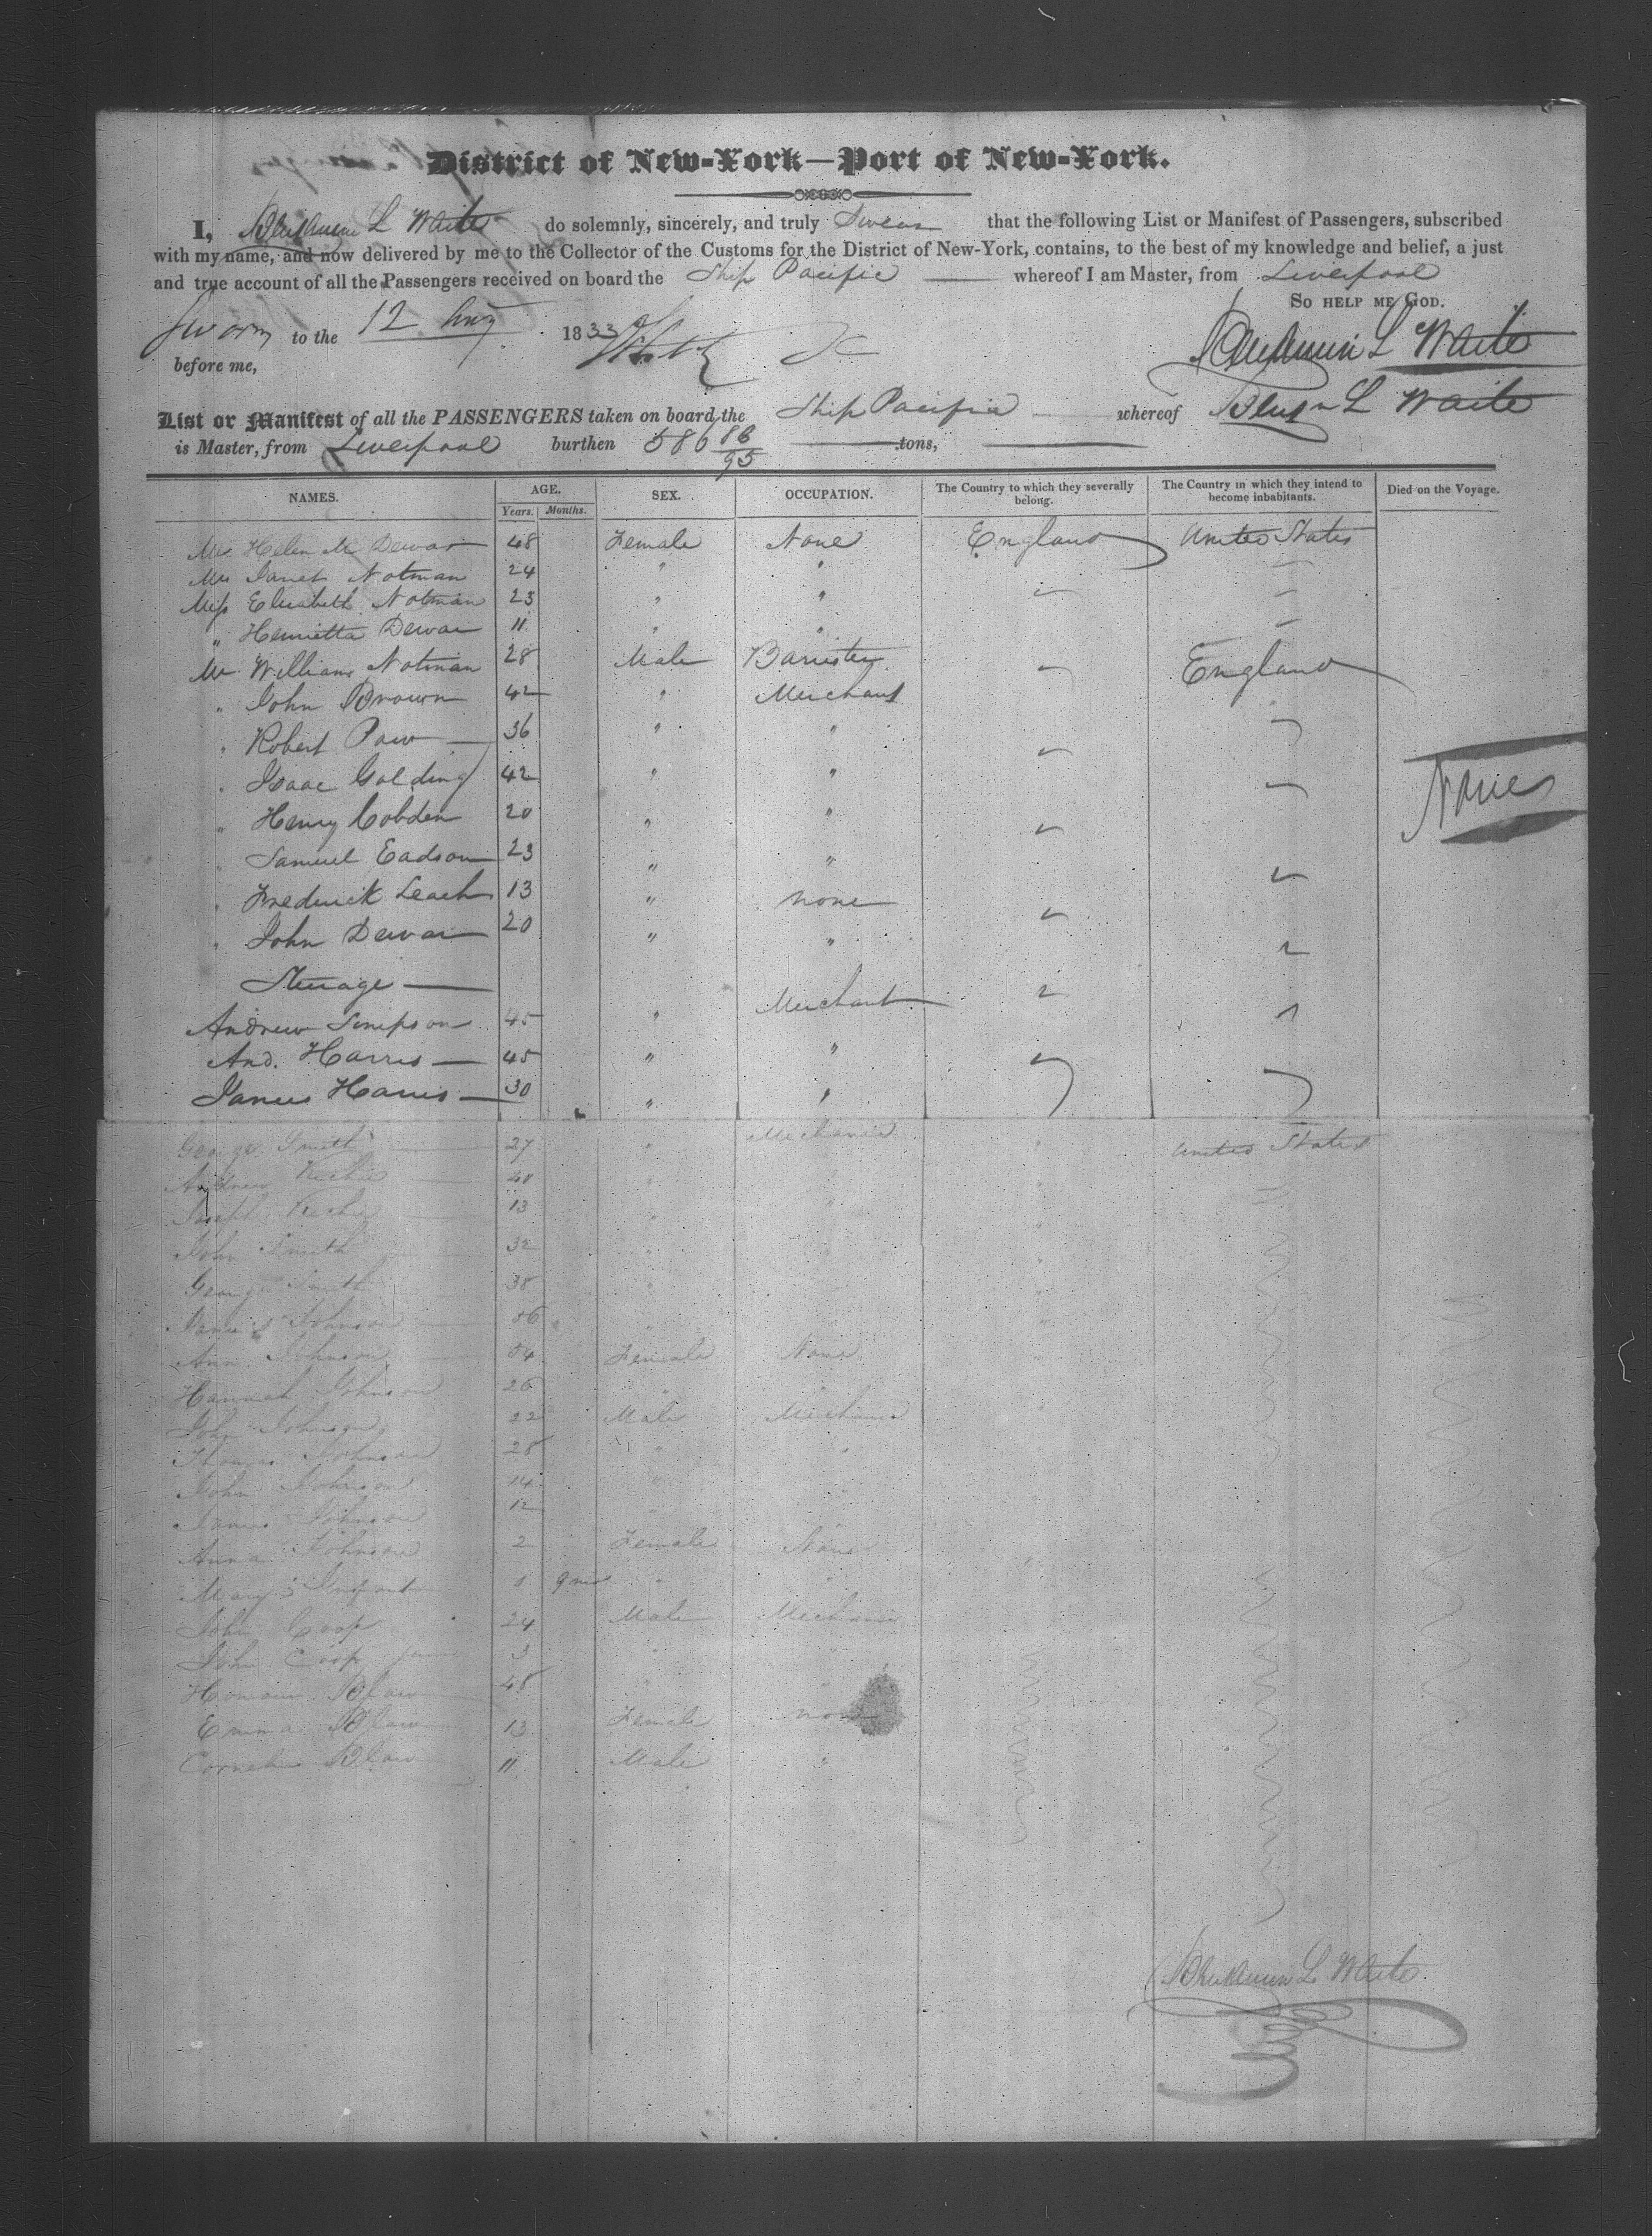 District of New-York—Port of New-York.
I, Benjamin L Waite do solemnly, sincerely, and truly Swear that the following List or Manifest of Passengers, subscribed
with my name, and now delivered by me to the Collector of the Customs for the District of New-York, contains, to the best of my knowledge and belief, a just
and true account of all the Passengers received on board the Ship Pacific whereof I am Master, from Liverpool
SO HELP ME GOD.
Sworn to the 12 Aug 1833
before me,
Benjamin L Waite
List or Manifest of all the PASSENGERS taken on board the Ship Pacific whereof Benjn L Waite
is Master, from Liverpool burthen 586 86/95 tons,
NAMES. AGE. SEX. OCCUPATION. The Country to which they severally belong. The Country in which they intend to become inhabitants. Died on the Voyage.
Years. Months.
Mrs Helen M Dewar 48 Female None England United States
Mrs Janet Notman 24 " "
Miss Elizabeth Notman 23 " "
" Henrietta Dewar 11 " "
Mr William Notman 28 Male Barrister England
" John Brown 42 " Merchant
" Robert Paw 36 " "
" Isaac Golding 42 " " None
" Henry Cobden 20 " "
" Samuel Eadson 23 " "
" Frederick Leach 13 " none
" John Dewar 20 " "
Steerage
Andrew Simpson 45 " Merchant
And. Harris 45 " "
James Harris 30 " "
George Smith 27 " Mechanic " United States
Andrew 40
Joseph 13
John Smith 32
George Smith 38
James Johnson 56
Ann Johnson 54 Female None
Hannah Johnson 26 "
John Johnson 22 Male Mechanic
Thomas Johnson 28 " "
John Johnson 14
James Johnson 12
Anna Johnson 2 Female None
Mary Infant 0 9 mos "
John Coop 24 Male Mechanic
John Coop junr 3 "
Blaw 48
Emma Blaw 13 Female none
Cornelius Blaw 11 Male "
Benjamin L Waite